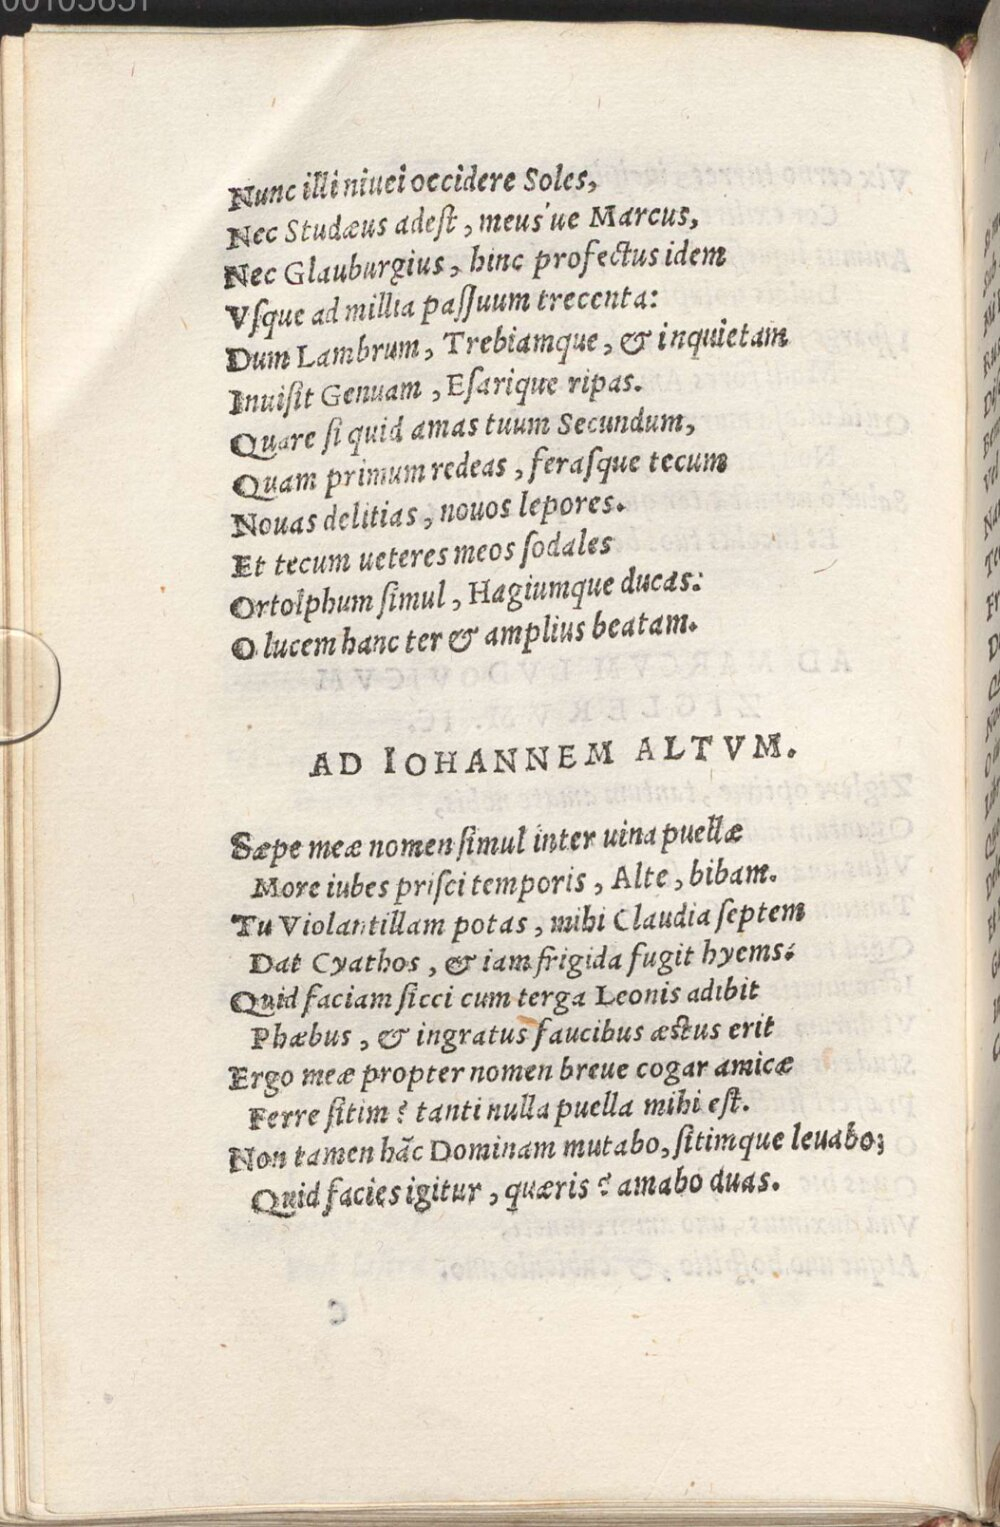 Nunc illi niuei occidere Soles,
Nec Studæus adeſt, meus'ue Marcus,
Nec Glauburgius, hinc profectus idem
Vſque ad millia paſſuum trecenta:
Dum Lambrum, Trebiamque, & inquietam
Inuiſit Genuam, Eſarique ripas.
Quare ſi quid amas tuum Secundum,
Quam primum redeas, feraſque tecum
Nouas delitias, nouos lepores.
Et tecum ueteres meos ſodales
Ortolphum ſimul, Hagiumque ducas:
O lucem hanc ter & amplius beatam.
AD IOHANNEM ALTVM.
Sæpe meæ nomen ſimul inter uina puellæ
More iubes priſci temporis, Alte, bibam.
Tu Violantillam potas, mihi Claudia ſeptem
Dat Cyathos, & iam frigida fugit hyems:
Quid faciam ſicci cum terga Leonis adibit
Phæbus, & ingratus faucibus æſtus erit
Ergo meæ propter nomen breue cogar amicæ
Ferre ſitim? tanti nulla puella mihi eſt.
Non tamen hāc Dominam mutabo, ſitimque leuabo;
Quid facies igitur, quæris? amabo duas.